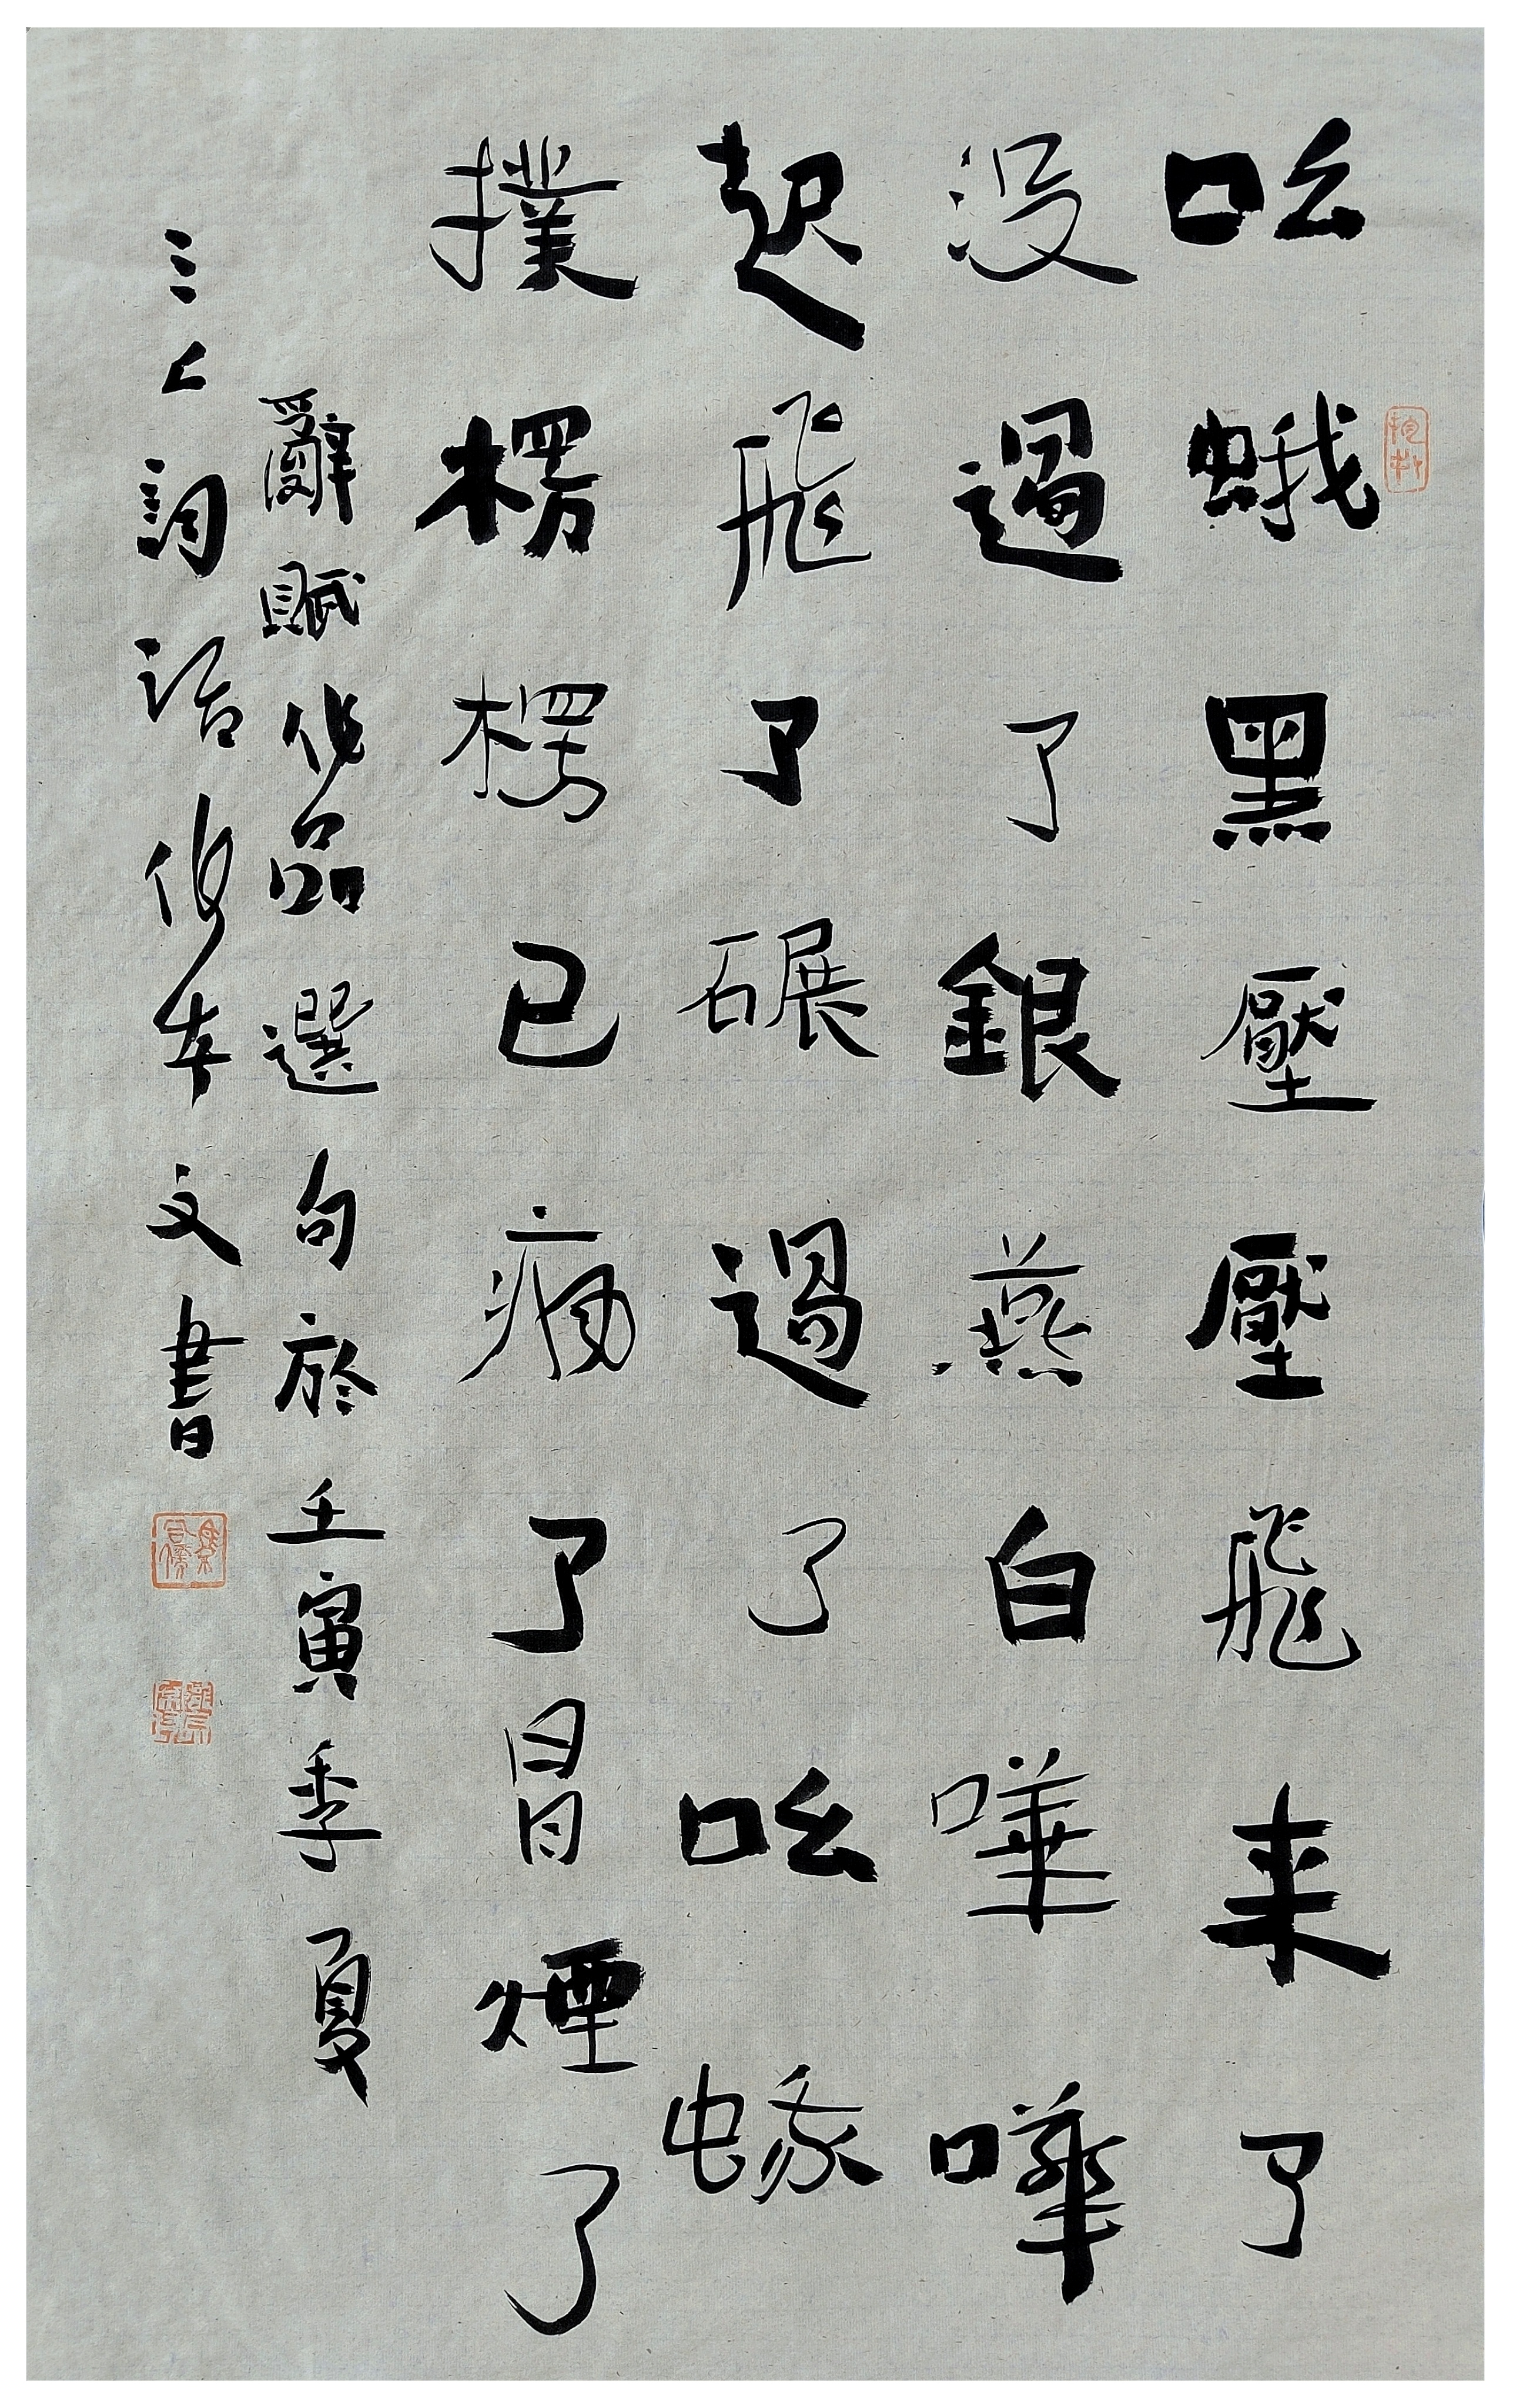 吆蛾黑壓壓飛来了
没過了銀燕白嘩嘩
起飛了碾過了吆蝝
撲楞楞已瘋了冒煙了
辭賦作品選句於壬寅季夏
詞話
文書